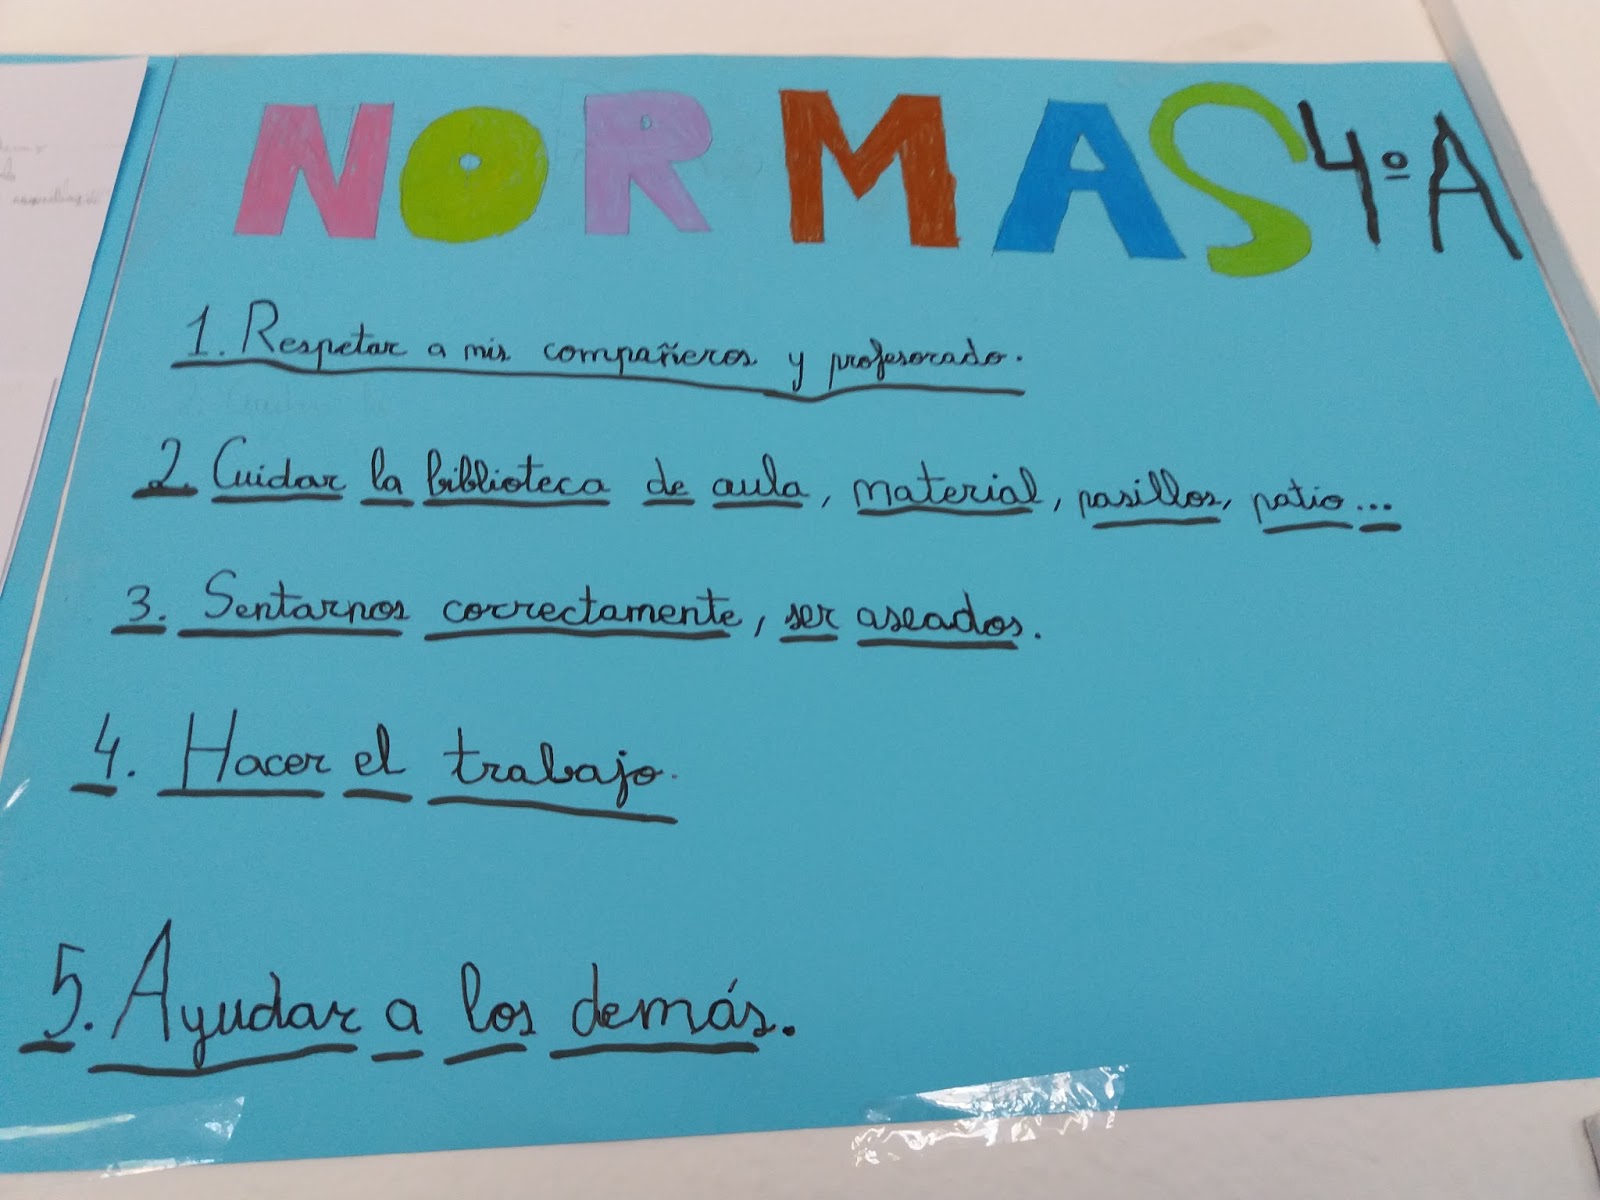 NORMAS 4º A
1. Respetar a mis compañeros y profesorado.
2. Cuidar la biblioteca de aula, material, pasillos, patio...
3. Sentarnos correctamente, ser aseados.
4. Hacer el trabajo.
5. Ayudar a los demás.